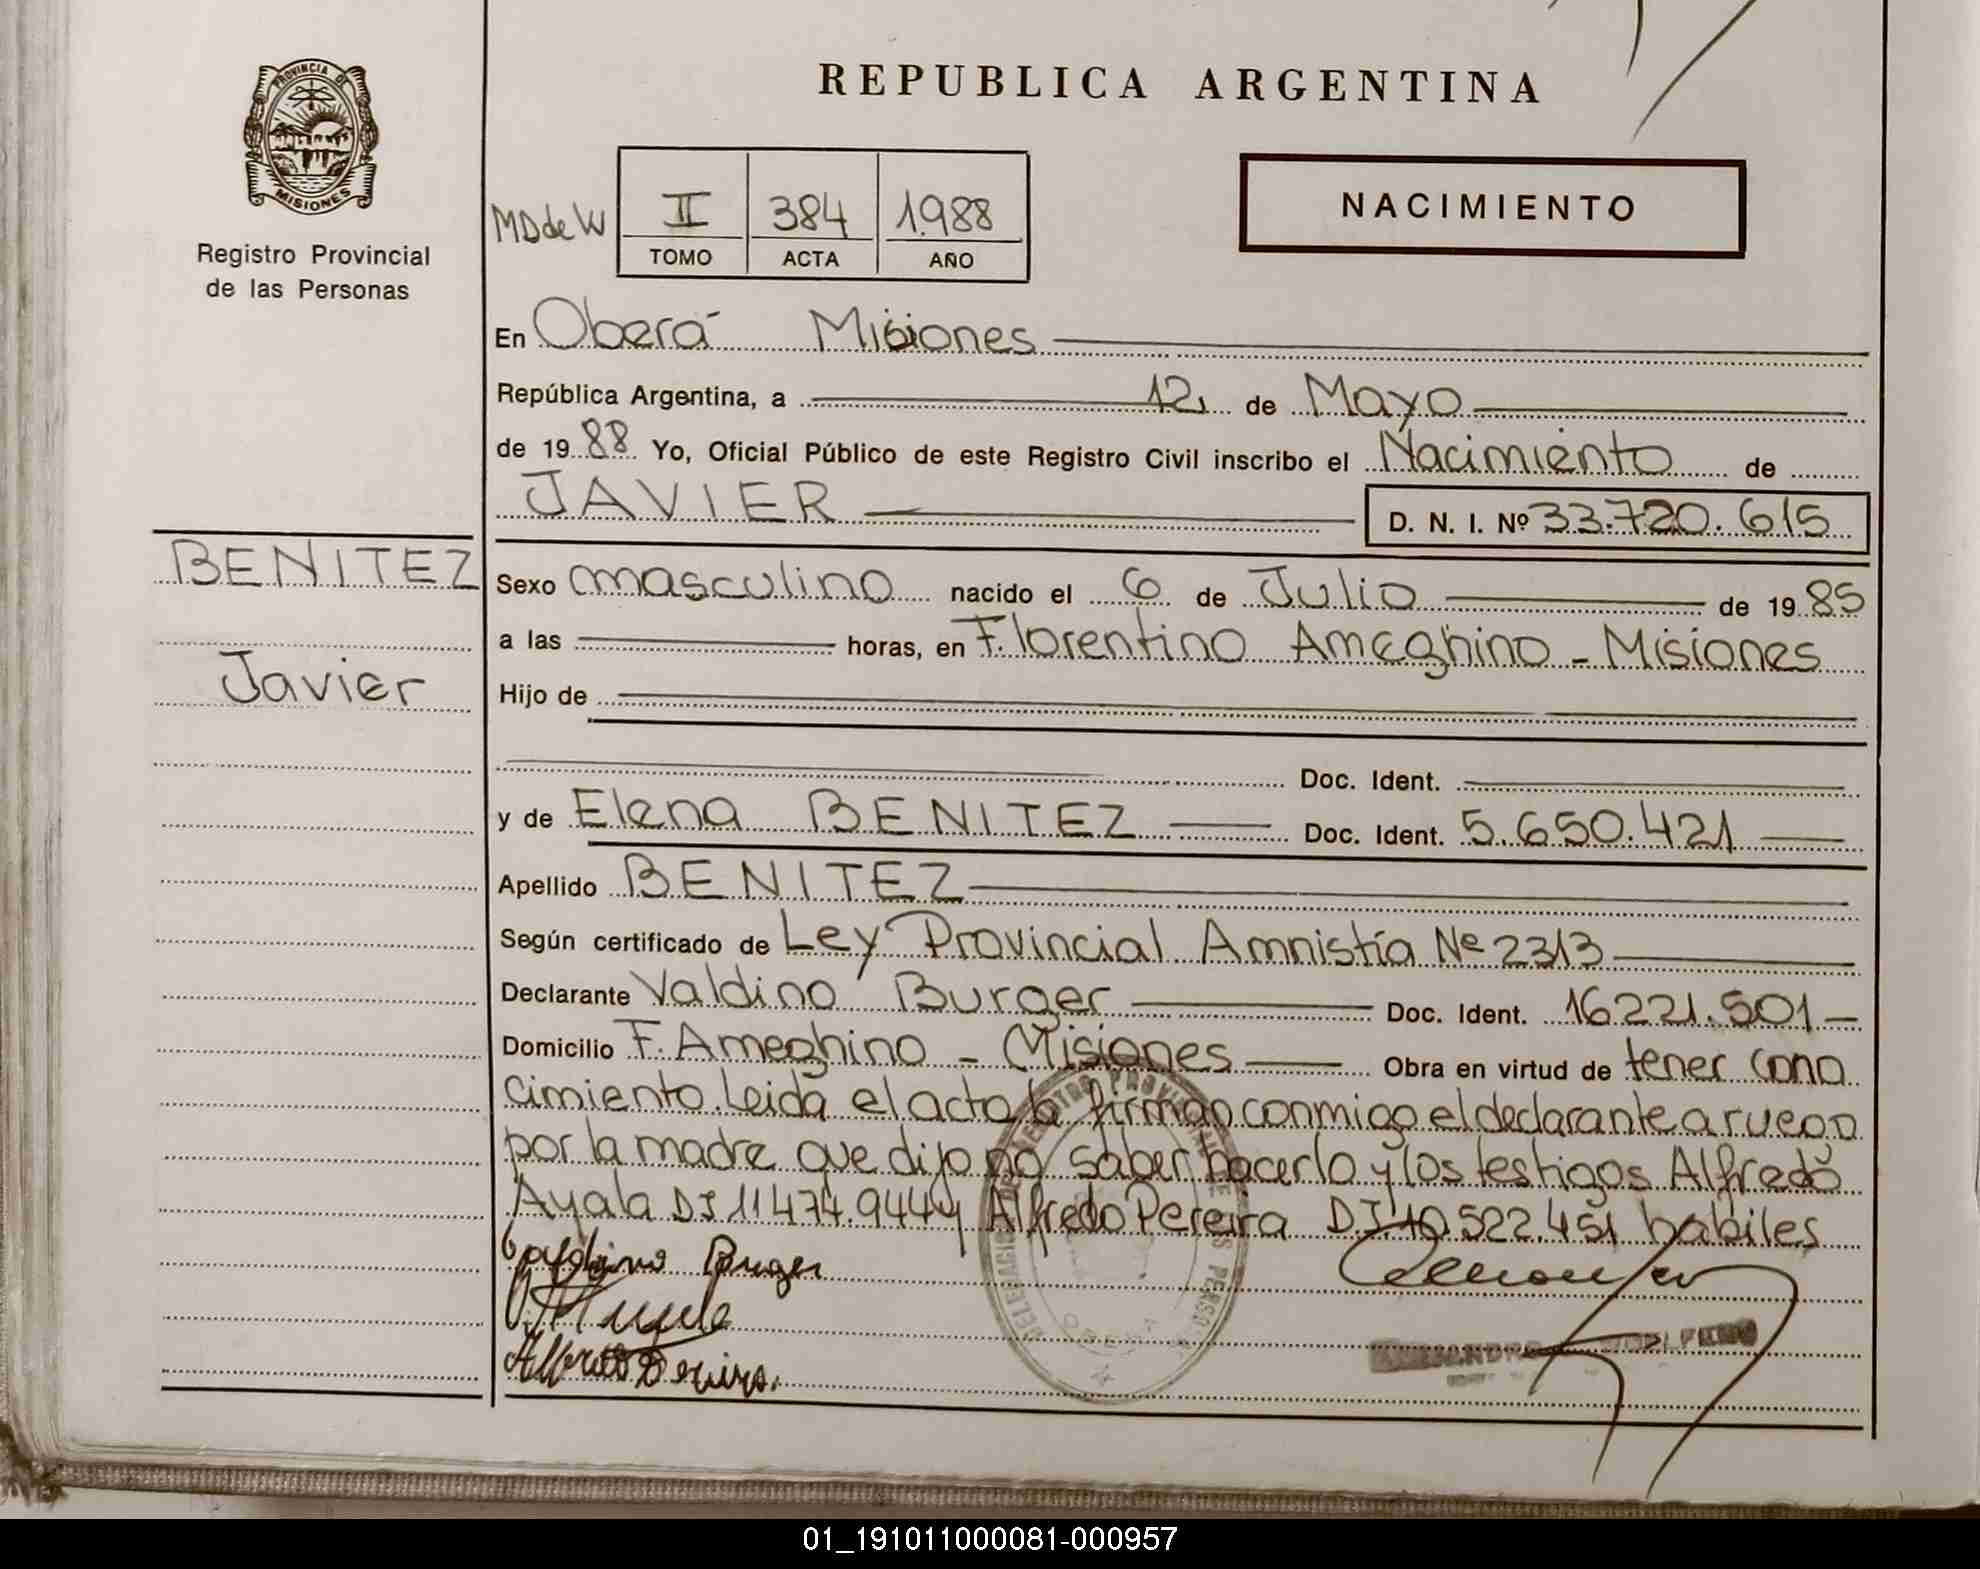 PROVINCIA DE
MISIONES
Registro Provincial
de las Personas
REPUBLICA ARGENTINA
MDdeW
II 384 1.988
TOMO ACTA AÑO
NACIMIENTO
En Oberá Misiones
República Argentina, a 12 de Mayo
de 19 88 Yo, Oficial Público de este Registro Civil inscribo el Nacimiento de
JAVIER D. N. I. Nº 33.720.615
BENITEZ
Javier
Sexo masculino nacido el 6 de Julio de 19 85
a las horas, en F.lorentino Ameghino - Misiones
Hijo de
Doc. Ident.
y de Elena BENITEZ Doc. Ident. 5.650.421
Apellido BENITEZ
Según certificado de Ley Provincial Amnistía Nº 2313
Declarante Valdino Burger Doc. Ident. 16221.501
Domicilio F. Ameghino - Misiones Obra en virtud de tener cono
cimiento. Leida el acta la firman conmigo el declarante a ruego
por la madre que dijo no saber hacerlo y los testigos Alfredo
Ayala DI 11474.944 y Alfredo Pereira DI 10.522.451 habiles
Burger
Alfredo Pereira.
OBERA
01_191011000081-000957